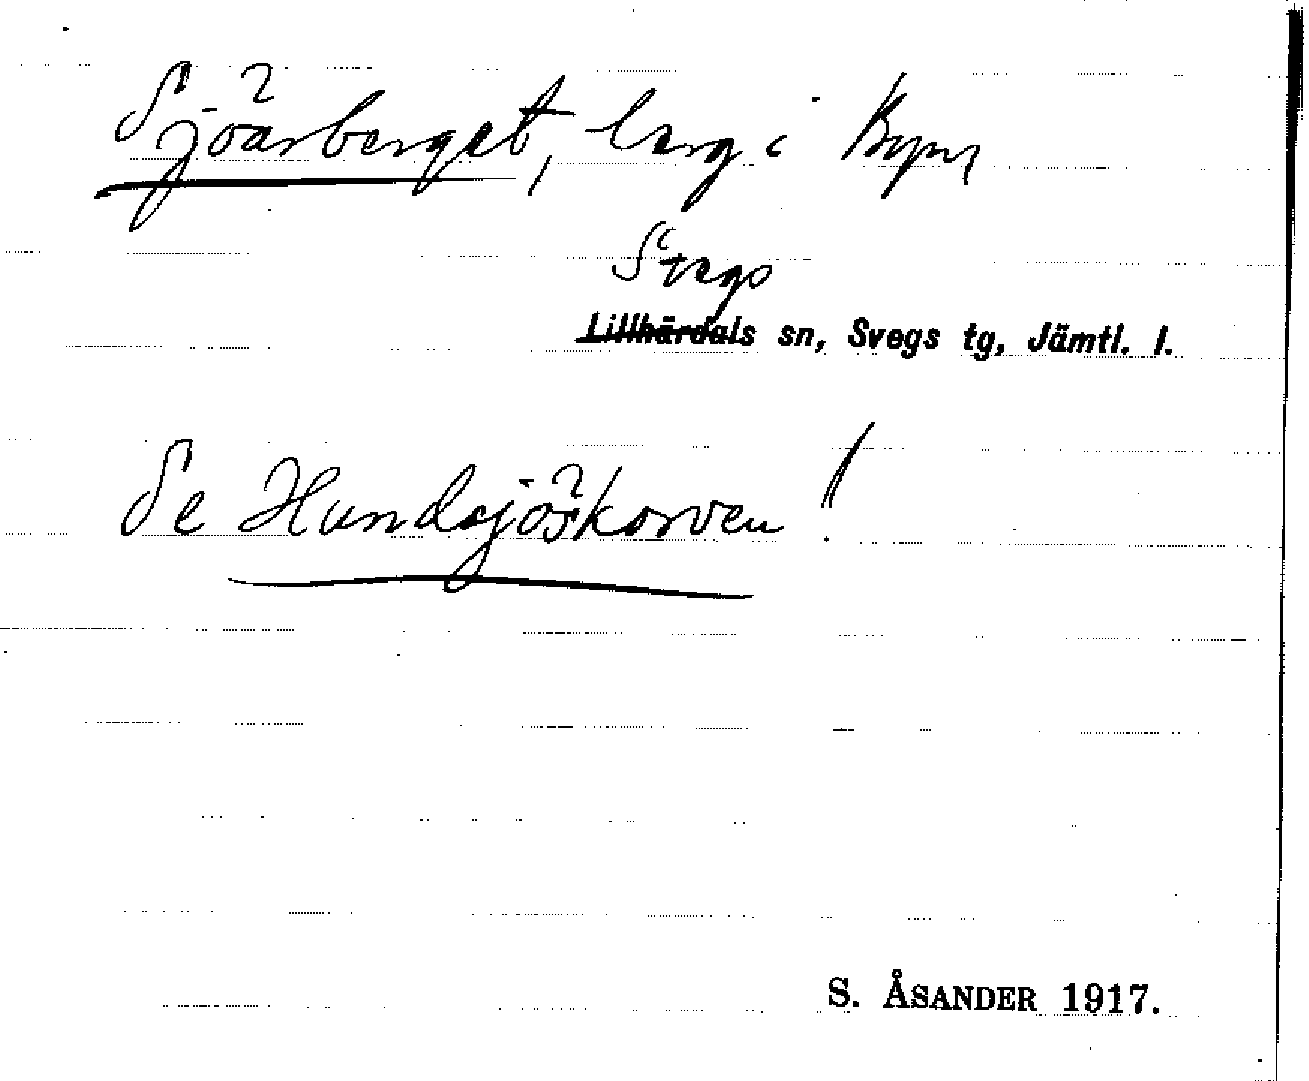 Sjöarberget, berg i Byn
Svegs
Lillhärdals sn, Svegs tg, Jämtl. l.
Se Hundsjöskorven !
S. ÅSANDER 1917.